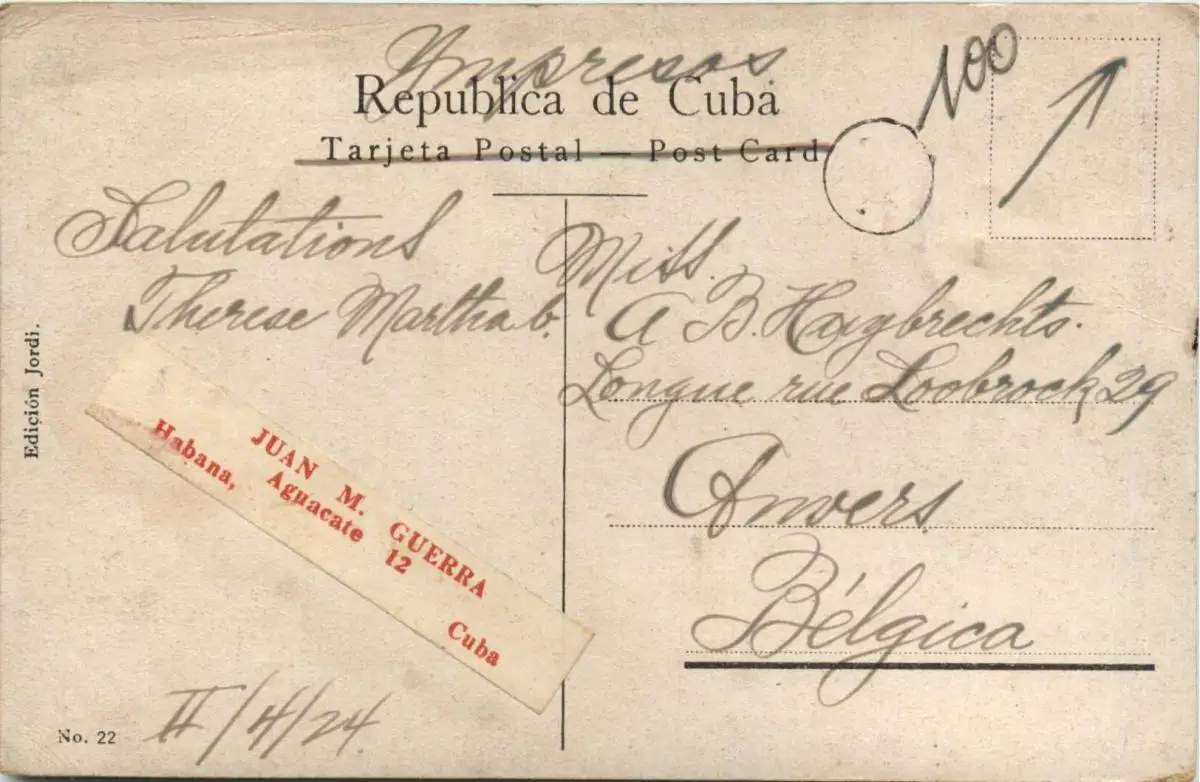 Impresos
100
Republica de Cuba
Tarjeta Postal — Post Card
Salutations
Therese Martha b.
Miss.
A B. Haybrechts.
Longue rue Loobrock 29
Anvers
Bélgica
Edición Jordi.
JUAN M. GUERRA
Habana, Aguacate 12
Cuba
No. 22
II/4/24